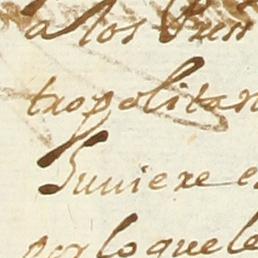 a los Pun
tropolitan
huuiere e
por lo que le